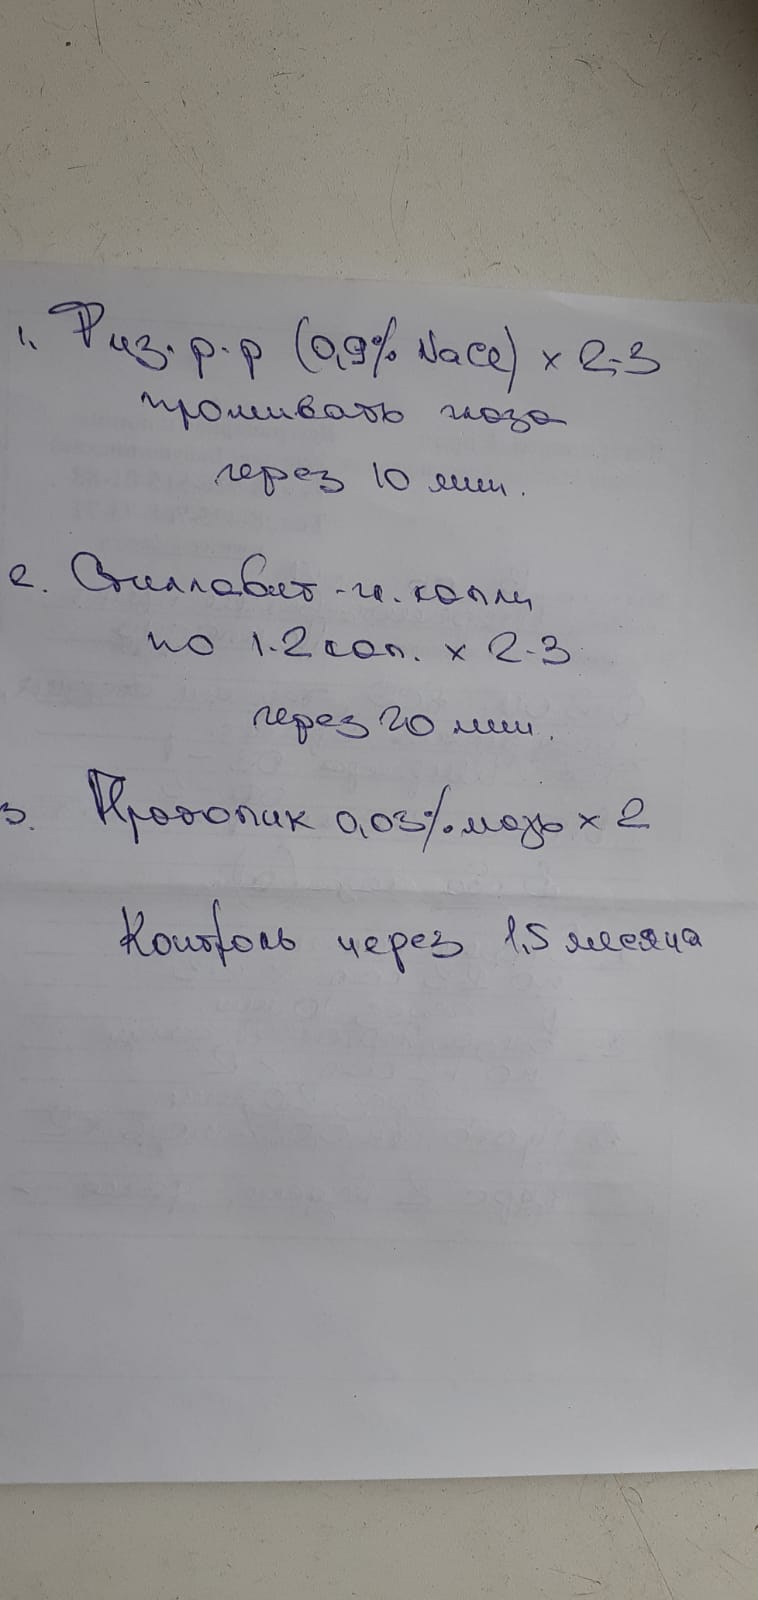 1. Физ. р-р (0,9% NaCl) x 2-3
промывать глаза
через 10 мин.
2. Стиллавит - гл. капли
по 1-2 кап. x 2-3
через 20 мин.
3. Протопик 0,03% мазь x 2
Контроль через 1,5 месяца